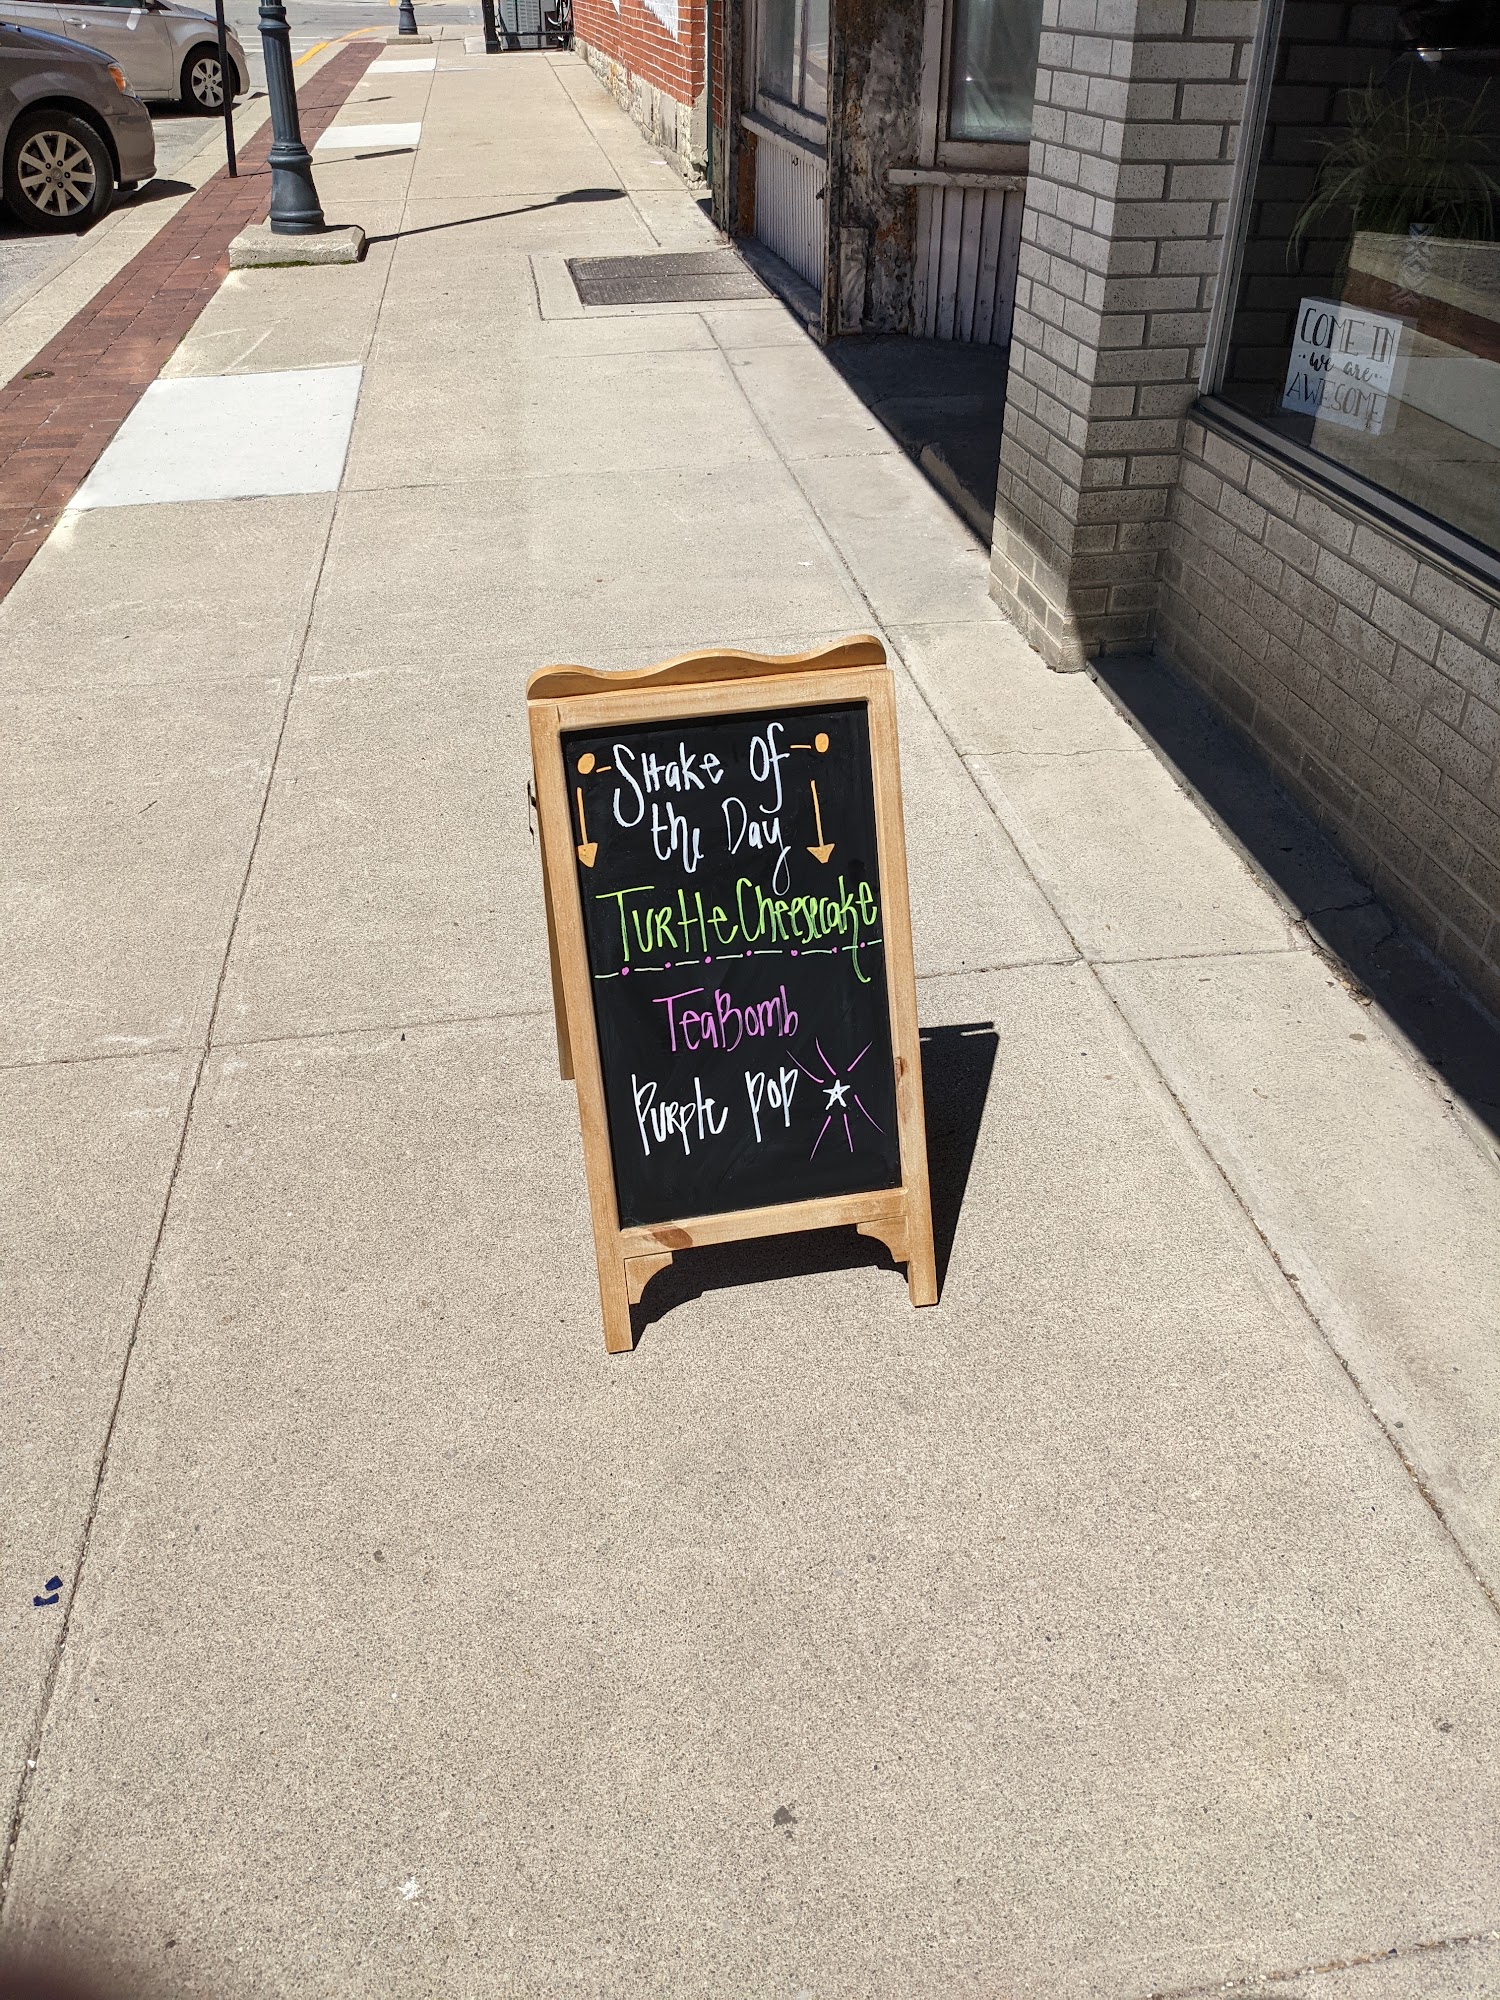 Shake Of
the Day
Turtle Cheesecake
TeaBomb
Purple Pop
COME IN
we are
AWESOME